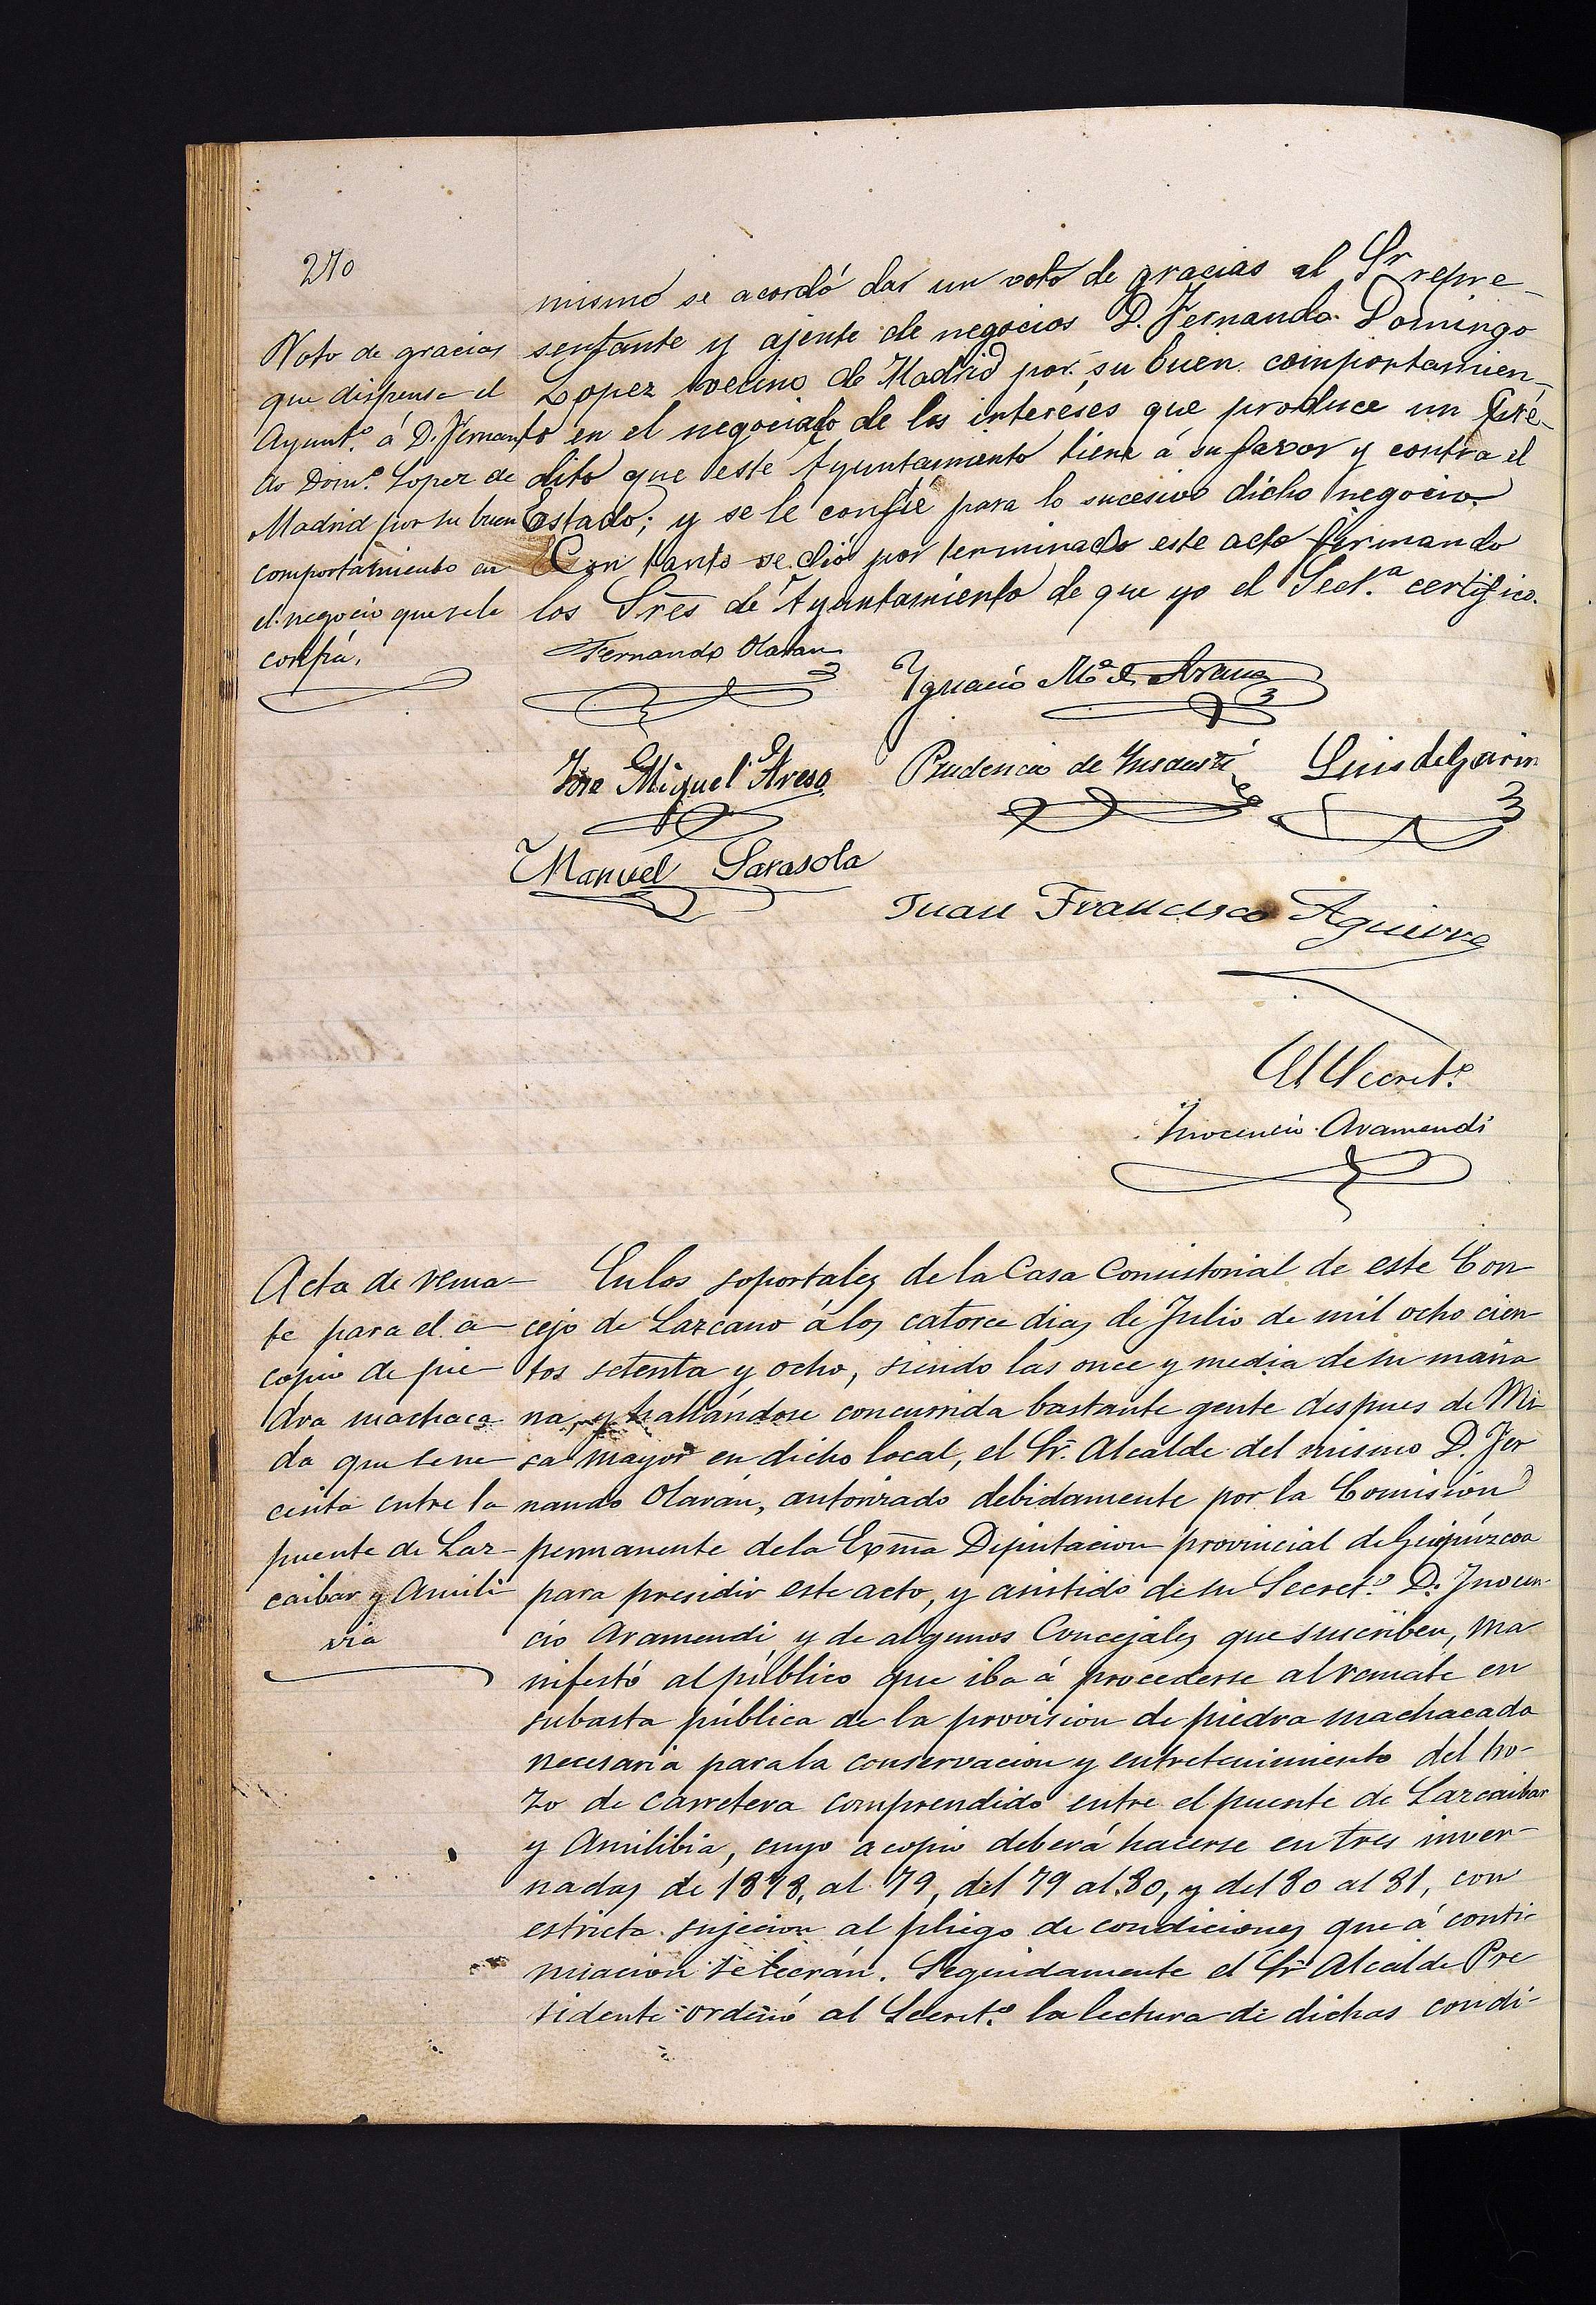 270
mismo se acordó dar un voto de gracias al Sr repre-
sentante y ajente de negocios D. Fernando Domingo
Lopez vecino de Madrid por su buen comportamien-
to en el negociado de los intereses que produce un Cré-
dito que este Ayuntamiento tiene á su favor y contra el
Estado; y se le confíe para lo sucesivo dicho negocio.
Con tanto se dió por terminado este acto firmando
los Sres de Ayuntamiento de que yo el Secr.ª certifico.
Voto de gracias
que dispensa el
Ayunt.º á D. Fernan
do Dom.º Lopez de
Madrid por su buen
comportamiento en
el negocio que se le
confía.
Fernando Olaran
Ygnacio Mª de Arana
José Miguel Areso
Prudencio de Ynsausti
Luis de Garin
Manuel Sarasola
Juan Francisco Aguirre
El Secret.º
Ynocencio Aramendi
Acta de rema-
te para el a-
copio de pie-
dra machaca
da que se ne-
cesita entre la
puente de Laz-
caibar y Amili
via
En los soportales de la Casa Consistorial de este Con
cejo de Lazcano á los catorce dias de Julio de mil ocho cien
tos setenta y ocho, siendo las once y media de su maña
na, y hallándose concurrida bastante gente despues de Mi
sa mayor en dicho local, el Sr. Alcalde del mismo D. Fer
nando Olarán, autorizado debidamente por la Comision
permanente de la Exma Diputacion provincial de Guipúzcoa
para presidir este acto, y asistido de su Secret.º D. Ynocen
cio Aramendi, y de algunos Concejales que suscriben, ma
nifestó al público que iba á procederse al remate en
subasta pública de la provision de piedra machacada
necesaria para la conservacion y entretenimiento del tro-
zo de carretera comprendido entre el puente de Lazcaibar
y Amilibia, cuyo acopio deberá hacerse en tres inver-
nadas de 1878, al 79, del 79 al 80, y del 80 al 81, con
estricta sujecion al pliego de condiciones que á conti-
nuacion se leerán. Seguidamente el Sr Alcalde Pre
sidente ordenó al Secret.º la lectura de dichas condi-